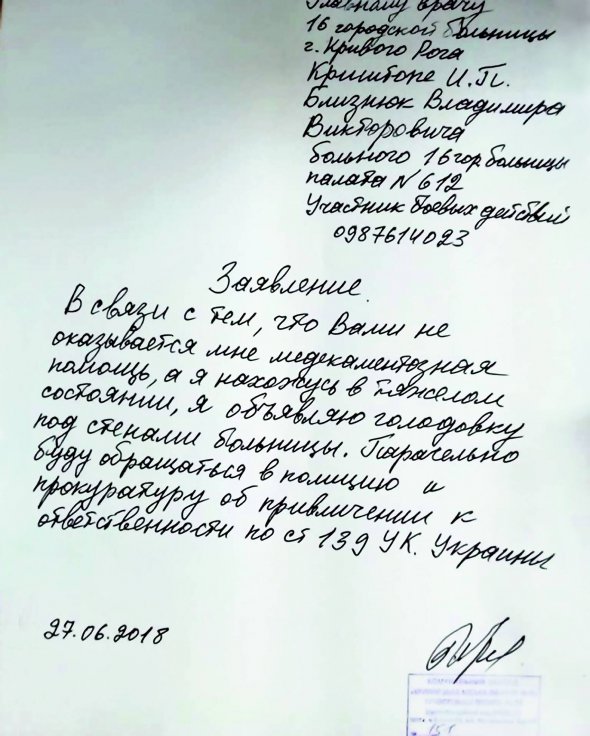 Главному врачу
16 городской больницы
г. Кривого Рога
Криштопе И.П.
Близнюк Владимира
Викторовича
больного 16 гор. больницы
палата N 612
Участник боевых действий
0987614023
Заявление.
В связи с тем, что Вами не
оказывается мне медекаментозная
помощь, а я нахожусь в тяжелом
состоянии, я объявляю голодовку
под стенами больницы. Парачельно
буду обращаться в полицию и
прокуратуру об привличении к
ответственности по ст 139 УК. Украины
27.06.2018